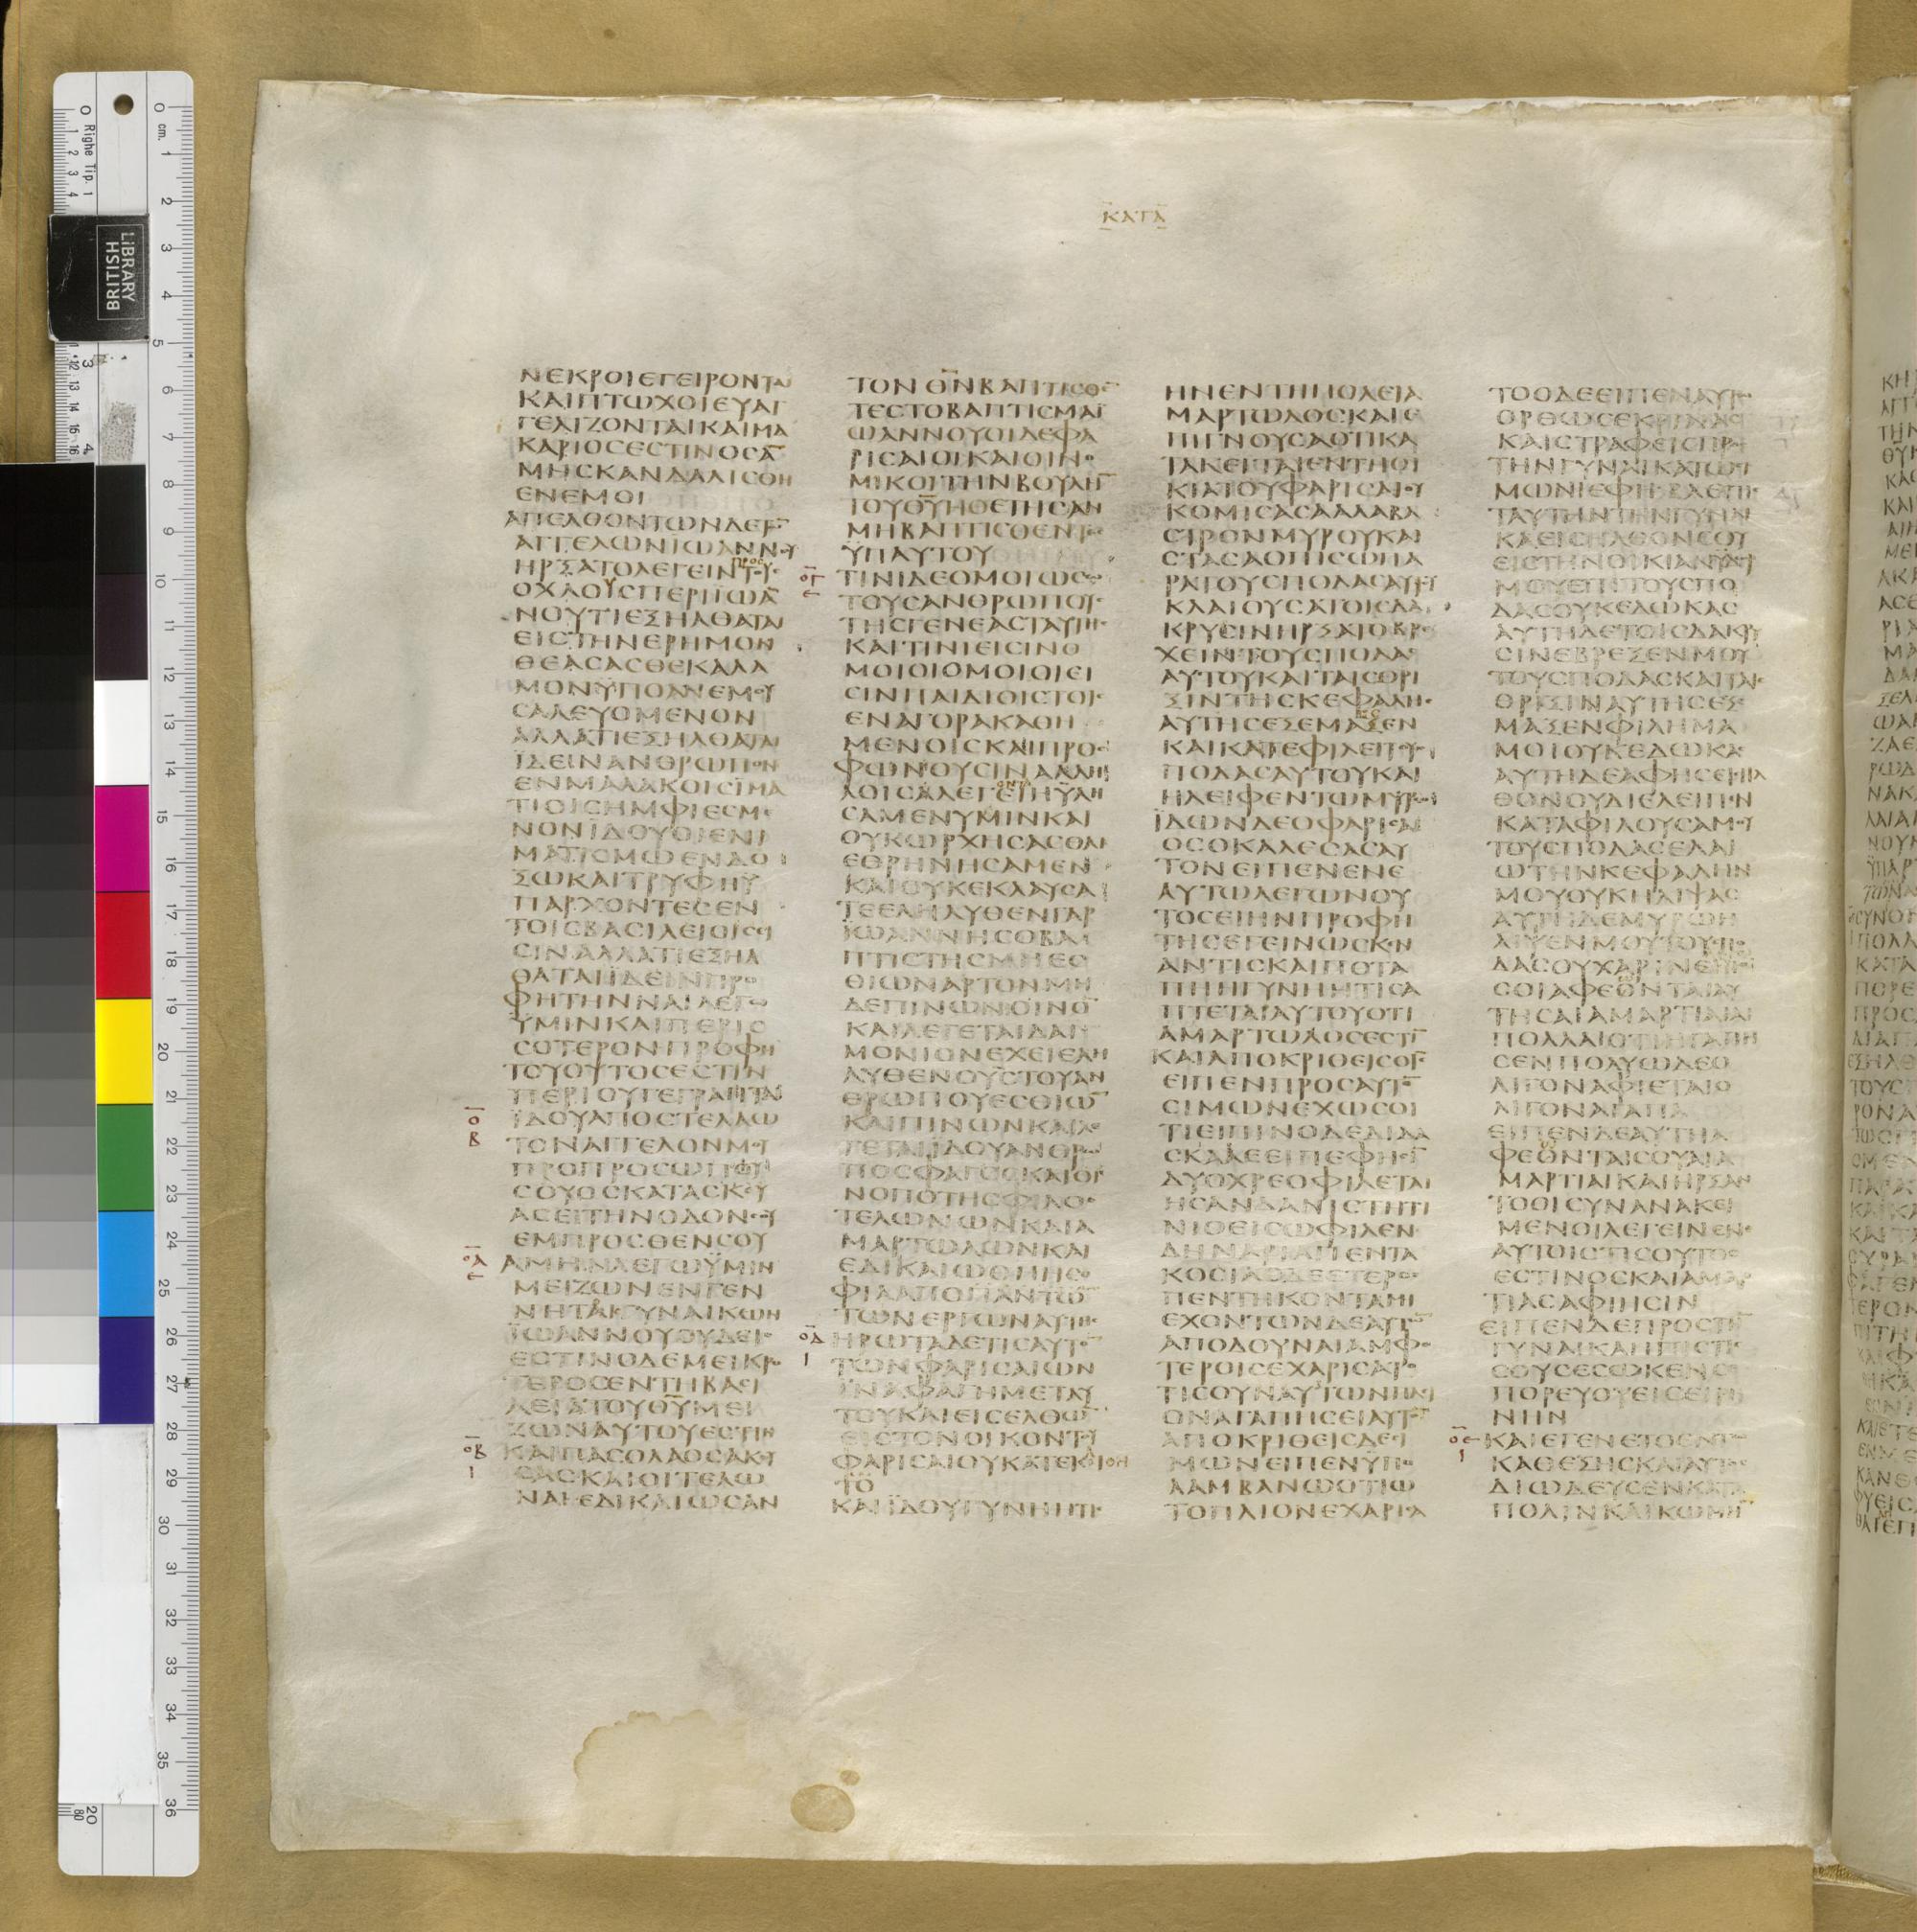 ΚΑΤΑ
ΝΕΚΡΟΙΕΓΕΙΡΟΝΤΑΙ
ΚΑΙΠΤΩΧΟΙΕΥΑΓ
ΓΕΛΙΖΟΝΤΑΙΚΑΙΜΑ
ΚΑΡΙΟСΕСΤΙΝΟСΑ̅
ΜΗСΚΑΝΔΑΛΙСΘΗ
ΕΝΕΜΟΙ
ΑΠΕΛΘΟΝΤΩΝΔΕΤΩ̅
ΑΓΓΕΛΩΝΙΩΑΝΝΟΥ
ΗΡΞΑΤΟΛΕΓΕΙΝΠΡΟСΤΟΥС
ΟΧΛΟΥСΠΕΡΙΪΩΑ̅
ΝΟΥΤΙΕΞΗΛΘΑΤΑΙ
ΕΙСΤΗΝΕΡΗΜΟΝ
ΘΕΑСΑСΘΕΚΑΛΑ
ΜΟΝΫΠΟΑΝΕΜΟΥ
СΑΛΕΥΟΜΕΝΟΝ
ΑΛΛΑΤΙΕΞΗΛΘΑΤΑΙ
ΪΔΕΙΝΑΝΘΡΩΠΟΝ
ΕΝΜΑΛΑΚΟΙСΪΜΑ
ΤΙΟΙСΗΜΦΙΕСΜΕ
ΝΟΝΪΔΟΥΟΙΕΝΪ
ΜΑΤΙСΜΩΕΝΔΟ
ΞΩΚΑΙΤΡΥΦΗΫ
ΠΑΡΧΟΝΤΕСΕΝ
ΤΟΙСΒΑСΙΛΕΙΟΙСΕΙ
СΙΝΑΛΛΑΤΙΕΞΗΛ
ΘΑΤΑΙΪΔΕΙΝΠΡΟ
ΦΗΤΗΝΝΑΙΛΕΓΩ
ΫΜΙΝΚΑΙΠΕΡΙС
СΟΤΕΡΟΝΠΡΟΦΗ
ΤΟΥΟΥΤΟСΕСΤΙΝ
ΠΕΡΙΟΥΓΕΓΡΑΠΤΑΙ
Ο̅Β
ΪΔΟΥΑΠΟСΤΕΛΛΩ
ΤΟΝΑΓΓΕΛΟΝΜΟΥ
ΠΡΟΠΡΟСΩΠΟΥ
СΟΥΟСΚΑΤΑСΚΕΥ
ΑСΕΙΤΗΝΟΔΟΝСΟΥ
ΕΜΠΡΟСΘΕΝСΟΥ
Ο̅Α
ΑΜΗΝΛΕΓΩΫΜΙΝ
ΜΕΙΖΩΝΕΝΓΕΝ
ΝΗΤΟΙСΓΥΝΑΙΚΩΝ
ΪΩΑΝΝΟΥΟΥΔΕΙС
ΕСΤΙΝΟΔΕΜΕΙΚΡΟ
ΤΕΡΟСΕΝΤΗΒΑСΙ
ΛΕΙΑΤΟΥΘ̅Υ̅ΜΕΙ
ΖΩΝΑΥΤΟΥΕСΤΙΝ
Ο̅Β
Ι
ΚΑΙΠΑСΟΛΑΟСΑΚΟΥ
СΑСΚΑΙΟΙΤΕΛΩ
ΝΑΙΕΔΙΚΑΙΩСΑΝ
ΤΟΝΘ̅Ν̅ΒΑΠΤΙСΘΕ̅
ΤΕСΤΟΒΑΠΤΙСΜΑΪ
ΩΑΝΝΟΥΟΙΔΕΦΑ
ΡΙСΑΙΟΙΚΑΙΟΙΝΟ
ΜΙΚΟΙΤΗΝΒΟΥΛΗ̅
ΤΟΥΘ̅Υ̅ΗΘΕΤΗСΑΝ
ΜΗΒΑΠΤΙСΘΕΝΤΕС
ΫΠΑΥΤΟΥ
Ο̅Γ
ΤΙΝΙΔΕΟΜΟΙΩСΩ
ΤΟΥСΑΝΘΡΩΠΟΥС
ΤΗСΓΕΝΕΑСΤΑΥΤΗС
ΚΑΙΤΙΝΙΕΙСΙΝΟ
ΜΟΙΟΙΟΜΟΙΟΙΕΙ
СΙΝΠΑΙΔΙΟΙСΤΟΙС
ΕΝΑΓΟΡΑΚΑΘΗ
ΜΕΝΟΙСΚΑΙΠΡΟС
ΦΩΝΟΥСΙΝΑΛΛΗ
ΛΟΙСΑΛΕΓΕΙΗΥΛΗ
СΑΜΕΝΥΜΙΝΚΑΙ
ΟΥΚΩΡΧΗСΑСΘΑΙ
ΕΘΡΗΝΗСΑΜΕΝ
ΚΑΙΟΥΚΕΚΛΑΥСΑ
ΤΕΕΛΗΛΥΘΕΝΓΑΡ
ΪΩΑΝΝΗСΟΒΑΠ
ΠΤΙСΤΗСΜΗΕС
ΘΙΩΝΑΡΤΟΝΜΗ
ΔΕΠΙΝΩΝΟΙΝΟ̅
ΚΑΙΛΕΓΕΤΑΙΔΑΙ
ΜΟΝΙΟΝΕΧΕΙΕΛΗ
ΛΥΘΕΝΟΥ̅С̅ΤΟΥΑΝ
ΘΡΩΠΟΥΕСΘΙΩ̅
ΚΑΙΠΙΝΩΝΚΑΙΛΕ
ΓΕΤΑΙΪΔΟΥΑΝΘΡΩ
ΠΟСΦΑΓΟСΚΑΙΟΙ
ΝΟΠΟΤΗСΦΙΛΟС
ΤΕΛΩΝΩΝΚΑΙΑ
ΜΑΡΤΩΛΩΝΚΑΙ
ΕΔΙΚΑΙΩΘΗΗСΟ
ΦΙΑΑΠΟΠΑΝΤΩ̅
ΤΩΝΕΡΓΩΝΑΥΤΗС
Ο̅Δ
Ι
ΗΡΩΤΑΔΕΤΙСΑΥΤΟ̅
ΤΩΝΦΑΡΙСΑΙΩΝ
ΪΝΑΦΑΓΗΜΕΤΑΥ
ΤΟΥΚΑΙΕΙСΕΛΘΩ̅
ΕΙСΤΟΝΟΙΚΟΝΤΟΥ
ΦΑΡΙСΑΙΟΥΚΑΤΕΚΛΙΘΗ
ΤΟ
ΚΑΙΪΔΟΥΓΥΝΗΗΤΙС
ΗΝΕΝΤΗΠΟΛΕΙΑ
ΜΑΡΤΩΛΟСΚΑΙΕ
ΠΙΓΝΟΥСΑΟΤΙΚΑ
ΤΑΚΕΙΤΑΙΕΝΤΗΟΙ
ΚΙΑΤΟΥΦΑΡΙСΑΙΟΥ
ΚΟΜΙСΑСΑΑΛΑΒΑ
СΤΡΟΝΜΥΡΟΥΚΑΙ
СΤΑСΑΟΠΙСΩΠΑ
ΡΑΤΟΥСΠΟΔΑСΑΥΤΟΥ
ΚΛΑΙΟΥСΑΤΟΙСΔΑ
ΚΡΥСΙΝΗΡΞΑΤΟΒΡΕ
ΧΕΙΝΤΟΥСΠΟΔΑС
ΑΥΤΟΥΚΑΙΤΑΙСΘΡΙ
ΞΙΝΤΗСΚΕΦΑΛΗС
ΑΥΤΗСΕΞΕΜΑΞΕΝ
ΚΑΙΚΑΤΕΦΙΛΕΙΤΟΥС
ΠΟΔΑСΑΥΤΟΥΚΑΙ
ΗΛΕΙΦΕΝΤΩΜΥΡΩ
ΪΔΩΝΔΕΟΦΑΡΙСΑΙ
ΟСΟΚΑΛΕСΑСΑΥ
ΤΟΝΕΙΠΕΝΕΝΕ
ΑΥΤΩΛΕΓΩΝΟΥ
ΤΟСΕΙΗΝΠΡΟΦΗ
ΤΗСΕΓΕΙΝΩСΚΕΝ
ΑΝΤΙСΚΑΙΠΟΤΑ
ΠΗΗΓΥΝΗΗΤΙСΑ
ΠΤΕΤΑΙΑΥΤΟΥΟΤΙ
ΑΜΑΡΤΩΛΟСΕСΤΙ̅
ΚΑΙΑΠΟΚΡΙΘΕΙСΟΙ̅С̅
ΕΙΠΕΝΠΡΟСΑΥΤΟ̅
СΙΜΩΝΕΧΩСΟΙ
ΤΙΕΙΠΙΝΟΔΕΔΙΔΑ
СΚΑΛΕΕΙΠΕΦΗСΙ̅
ΔΥΟΧΡΕΟΦΙΛΕΤΑΙ
ΗСΑΝΔΑΝΙСΤΗΤΙ
ΝΙΟΕΙСΩΦΙΛΕΝ
ΔΗΝΑΡΙΑΠΕΝΤΑ
ΚΟСΙΑΟΔΕΕΤΕΡΟС
ΠΕΝΤΗΚΟΝΤΑΜΗ
ΕΧΟΝΤΩΝΔΕΑΥΤΩ̅
ΑΠΟΔΟΥΝΑΙΑΜΦΟ
ΤΕΡΟΙСΕΧΑΡΙСΑΤΟ
ΤΙСΟΥΝΑΥΤΩΝΠΛΙ
ΟΝΑΓΑΠΗСΕΙΑΥΤΟ̅
ΑΠΟΚΡΙΘΕΙСΔΕСΙ
ΜΩΝΕΙΠΕΝΫΠΟ
ΛΑΜΒΑΝΩΟΤΙΩ
ΤΟΠΛΙΟΝΕΧΑΡΙСΑ
ΤΟΟΔΕΕΙΠΕΝΑΥΤΩ
ΟΡΘΩСΕΚΡΙΝΑС
ΚΑΙСΤΡΑΦΕΙСΠΡΟС
ΤΗΝΓΥΝΑΙΚΑΤΩСΙ
ΜΩΝΙΕΦΗΒΛΕΠΙС
ΤΑΥΤΗΝΤΗΝΓΥΝΑΙ
ΚΑΕΙСΗΛΘΟΝСΟΥ
ΕΙСΤΗΝΟΙΚΙΑΝ
ΜΟΥΕΠΙΤΟΥСΠΟ
ΔΑСΟΥΚΕΔΩΚΑС
ΑΥΤΗΔΕΤΟΙСΔΑΚΡΥ
СΙΝΕΒΡΕΞΕΝΜΟΥ
ΤΟΥСΠΟΔΑСΚΑΙΤΑΙС
ΘΡΙΞΙΝΑΥΤΗСΕΞΕ
ΜΑΞΕΝΦΙΛΗΜΑ
ΜΟΙΟΥΚΕΔΩΚΑС
ΑΥΤΗΔΕΑΦΗСΕΙСΗΛ
ΘΟΝΟΥΔΙΕΛΕΙΠΕΝ
ΚΑΤΑΦΙΛΟΥСΑΜΟΥ
ΤΟΥСΠΟΔΑСΕΛΑΙ
ΩΤΗΝΚΕΦΑΛΗΝ
ΜΟΥΟΥΚΗΛΙΨΑС
ΑΥΤΗΔΕΜΥΡΩΗ
ΛΙΨΕΝΜΟΥΤΟΥСΠΟ
ΔΑСΟΥΧΑΡΙΝ
СΟΙΑΦΕΟΝΤΑΙΑΥ
ΤΗСΑΙΑΜΑΡΤΙΑΙΑΙ
ΠΟΛΛΑΙΟΤΙΗΓΑΠΗ
СΕΝΠΟΛΥΩΔΕΟ
ΛΙΓΟΝΑΦΙΕΤΑΙΟ
ΛΙΓΟΝΑΓΑΠΑ
ΕΙΠΕΝΔΕΑΥΤΗΑ
ΦΕΟΝΤΑΙСΟΥΑΙΑ
ΜΑΡΤΙΑΙΚΑΙΗΡΞΑΝ
ΤΟΟΙСΥΝΑΝΑΚΕΙ
ΜΕΝΟΙΛΕΓΕΙΝΕΝΕ
ΑΥΤΟΙСΤΙСΟΥΤΟС
ΕСΤΙΝΟСΚΑΙΑΜΑΡ
ΤΙΑСΑΦΙΗСΙΝ
ΕΙΠΕΝΔΕΠΡΟСΤΗ̅
ΓΥΝΑΙΚΑΗΠΙСΤΙС
СΟΥСΕСΩΚΕΝСΕ
ΠΟΡΕΥΟΥΕΙСΕΙΡΗ
ΝΗΝ
Ο̅Ε
Ι
ΚΑΙΕΓΕΝΕΤΟΕΝΤΩ
ΚΑΘΕΞΗСΚΑΙΑΥΤΟС
ΔΙΩΔΕΥСΕΝΚΑΤΑ
ΠΟΛΙΝΚΑΙΚΩΜΗ̅